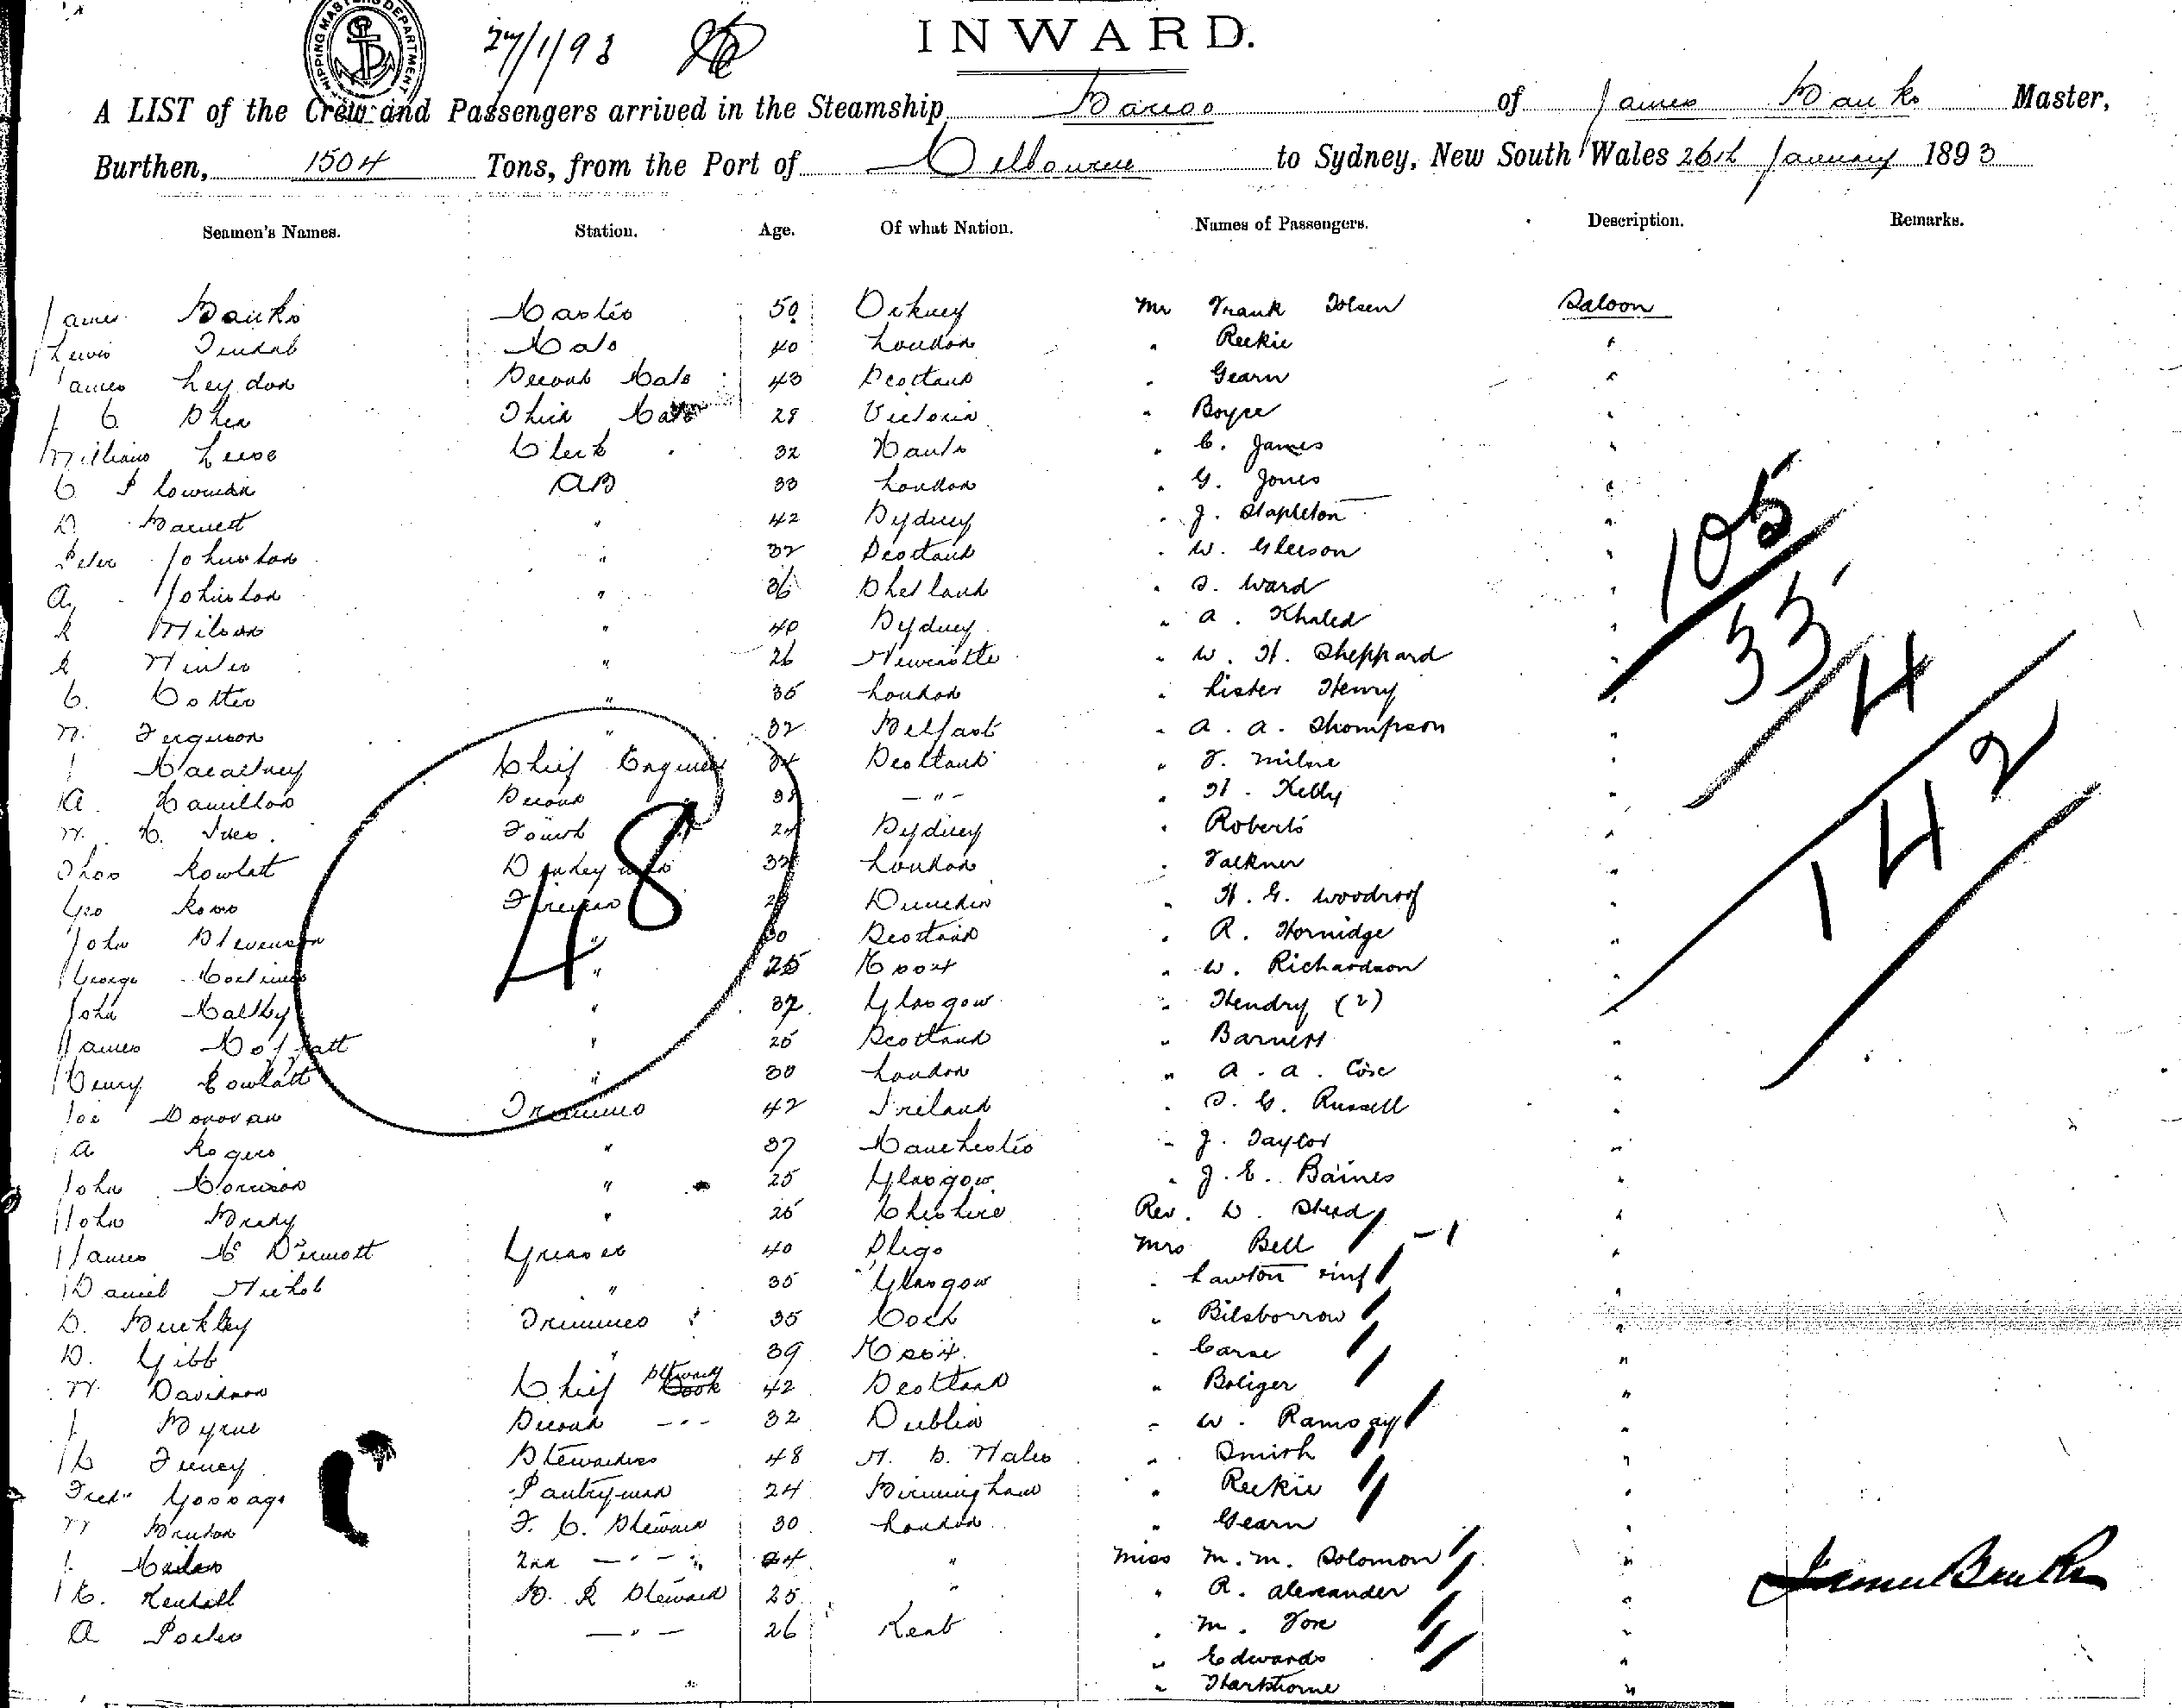 SHIPPING MASTERS DEPARTMENT
27/1/93
INWARD.
A LIST of the Crew and Passengers arrived in the Steamship of James Banks Master,
Burthen, 1504 Tons, from the Port of Melbourne to Sydney, New South Wales 26th January 1893
Seamen's Names. Station. Age. Of what Nation. Names of Passengers. Description. Remarks.
James Banks Master 50 Orkney Mr Frank Saloon
Lewis Mate 40 London " Reekie "
James Leydon Second Mate 43 Scotland " Gearn "
Shea Third Mate 28 Victoria " Boyce "
William Clerk 32 Hants " C. James "
C Plowman AB 33 London " G. Jones "
D. Barnett " 42 Sydney " J. Stapleton "
Peter Johnston " 32 Scotland " W. Gleeson "
A. Johnston " 36 Shetland " S. Ward "
Wilson " 40 Sydney " A. Khaled "
Winter " 26 Newcastle " W. H. Sheppard "
C. Cotter " 35 London " Lister Henry "
W. Ferguson " 32 Belfast " A. A. Thompson "
J Macartney Chief Engineer 34 Scotland " F. Milne "
A. Hamilton Second 38 — " — " H. Kelly "
W. H. Ives Fourth 24 Sydney " Roberts "
Thos Rowlatt Donkey man London " Falkner "
Geo Ross Fireman Dunedin " H. G. Woodroof "
John Stevenson " 30 Scotland " R. Hornidge "
George Mortimer " 25 Essex " W. Richardson "
John Maltby " 37 Glasgow " Hendry (2) "
James Moffatt " 25 Scotland " Barnett "
Henry Rowlatt " 30 London " A. A. "
Joe Donovan Trimmer 42 Ireland " S. G. Russell "
A Rogers " 37 Manchester " J. Taylor "
John Morrison " 25 Glasgow " J. E. Baines "
John Brady " 25 Cheshire Rev. W. Steed "
James McDermott Greaser 40 Sligo Mrs Bell — 1 "
Daniel Nichol " 35 Glasgow " Lawton "
D. Buckley Trimmer 35 Cork " Bilsborrow "
D. Gibb " 39 Essex " Carse "
W. Davidson Chief Steward 42 Scotland " Boliger "
J. Byrne Second — " — 32 Dublin " W. Ramsay "
Stewardess 48 N. S. Wales " Smith "
Fredk Gossage Pantryman 24 Birmingham " Reekie "
W Bruton F. C. Steward 30 London " Gearn "
J. 2nd — " — 24 " Miss M. M. Solomon "
Kendall B. R Steward 25 " " R. Alexander "
A Porter — " — 26 Kent " M. Fox "
" Edwards "
" Harthorne "
48
105
33
4
142
James Banks